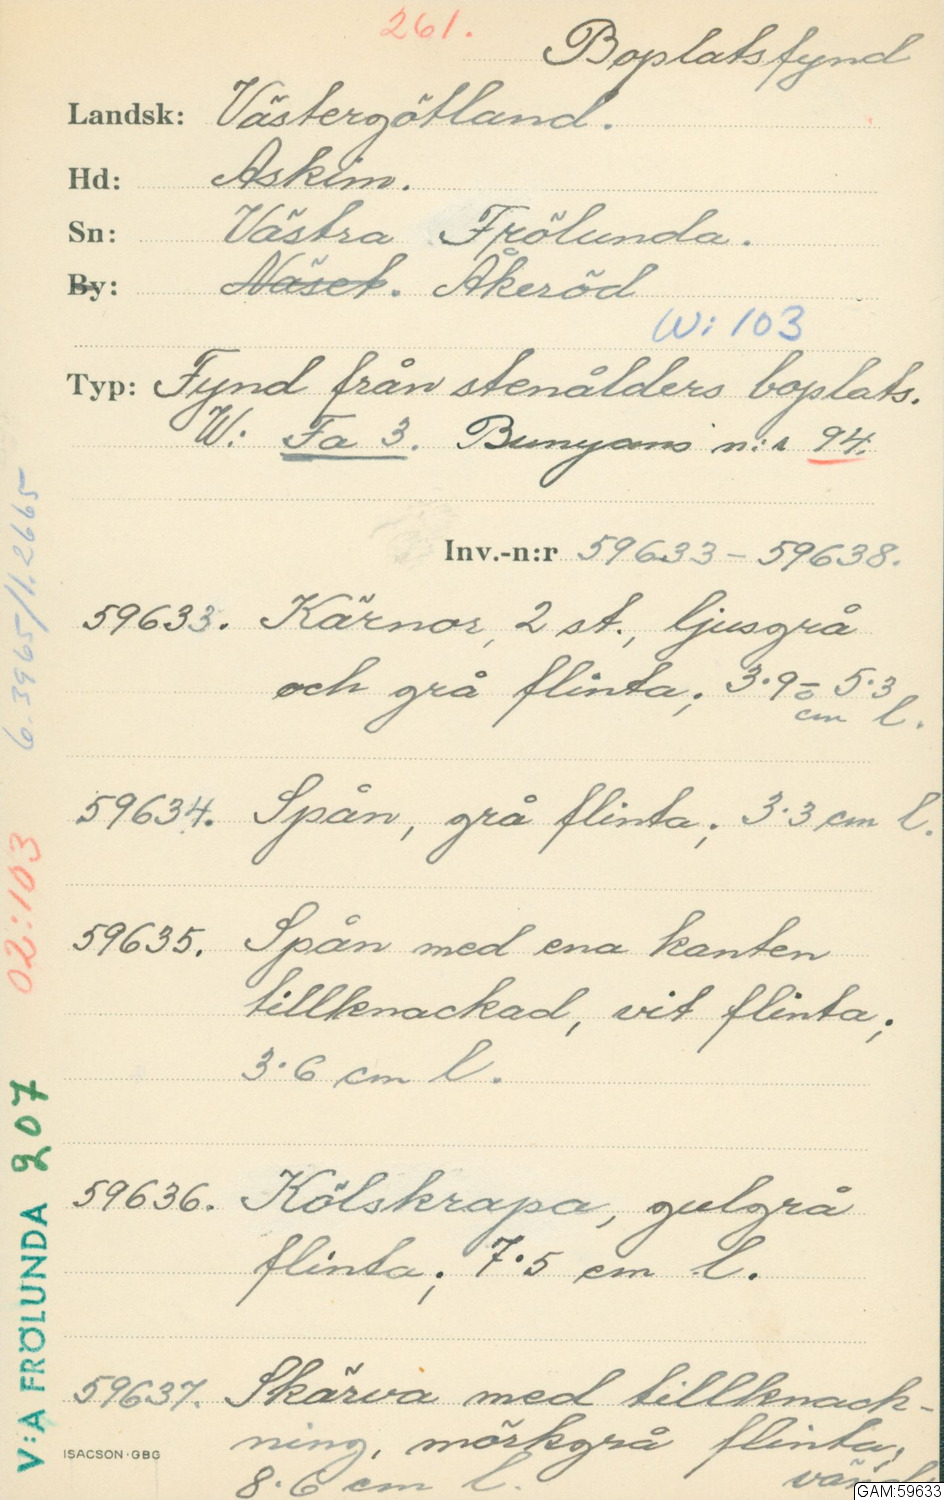 261.
Boplatsfynd
Landsk: Västergötland.
Hd: Askim.
Sn: Västra Frölunda.
By: Näset. Åkeröd
W: 103
Typ: Fynd från stenålders boplats.
W: Fa 3. Bunyans n:r 94.
Inv.-n:r 59633 – 59638.
59633. Kärnor, 2 st., ljusgrå
och grå flinta; 3·9 – 5·3
cm l.
59634. Spån, grå flinta; 3·3 cm l.
59635. Spån med ena kanten
tillknackad, vit flinta;
3·6 cm l.
59636. Kölskrapa, gulgrå
flinta; 7·5 cm l.
59637. Skärva med tillknack-
ning, mörkgrå flinta;
8·6 cm l.
ISACSON·GBG
V:A FRÖLUNDA 207
02:103
6.3965/1.2665
GAM:59633